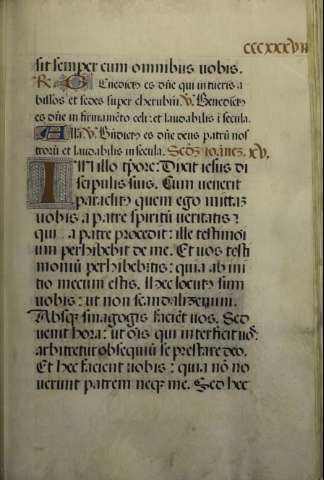 CCCXXXVII
sit semper cum omnibus uobis.
R. G. Enedict9 es dñe qui intueris a
bissos et sedes super cherubin V. Benedict9
es dñe in firmamẽto celi: et laudabilis ĩ secula.
Alla V. Bñdict9 es dñe deus patrũ nos
trorũ et laudabilis in secula. Secds ioãnez. XV.
IN illo tpore: Dixit iesus di
scipulis suis. Cum uenerit
paraclit9 quem ego mittaz
uobis a patre spiritũ ueritatis:
qui a patre procedit: ille testimoi
um perhibebit de me. Et uos testi
moniũ perhibebitis: quia ab ini
tio mecum estis. Hec locut9 sum
uobis: ut non scandalizemini.
Absqz sinagogis faciẽt uos. Sed
uenit hora: ut oĩs qui interficit uos:
arbitretur obsequiũ se prestare deo.
Et hec facient uobis: quia nõ no
uerunt patrem neqz me. Sed hec